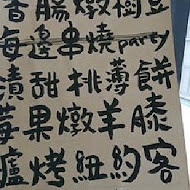 香腸燉樹豆
海邊串燒party
漬甜桃薄餅
莓果燉羊膝
爐烤紐約客